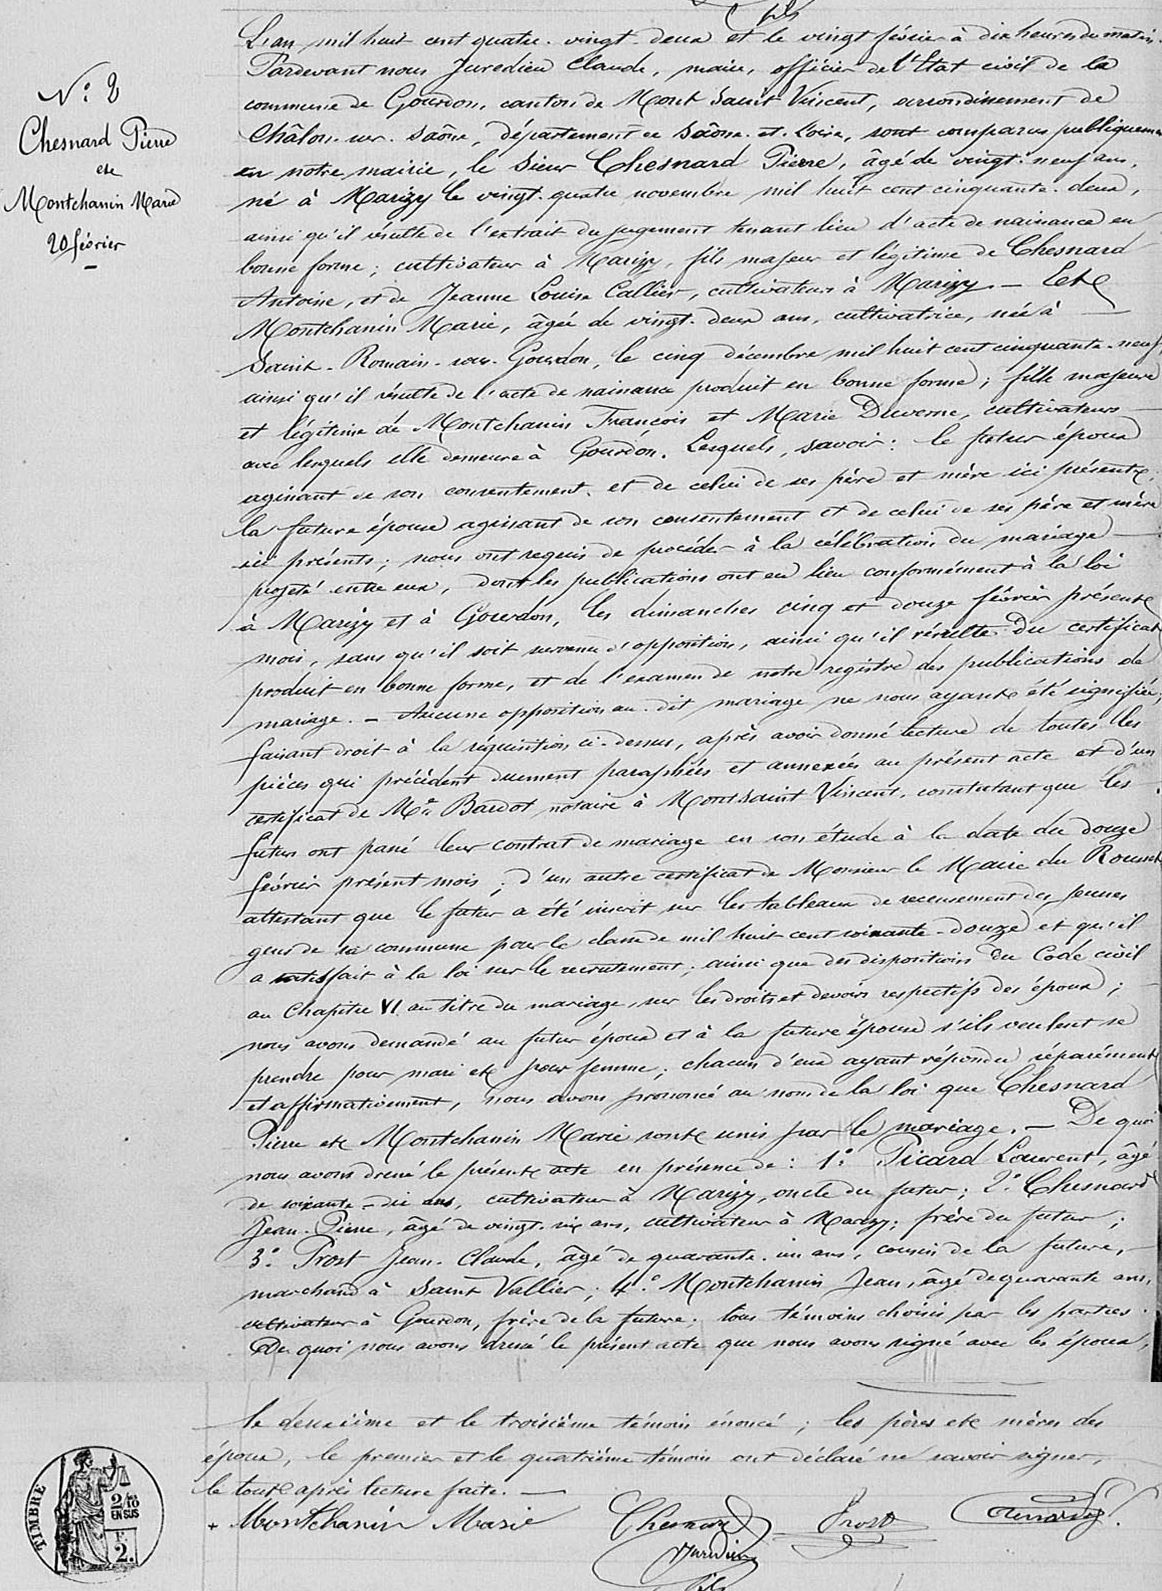 fils
L'an mil huit cent quatre-vingt-deux et le vingt février à dix heures du matin.
Pardevant nous Juredieu Claude, maire, officier de l'État civil de la
commune de Gourdon, canton de Mont Saint Vincent, arrondissement de
Châlon-sur-Saône, département de Saône-et-Loire, sont comparus publiquement
en notre mairie, le sieur Chesnard Pierre, âgé de vingt-neuf ans,
né à Marizy le vingt-quatre novembre mil huit cent cinquante-deux,
ainsi qu'il résulte de l'extrait du jugement tenant lieu d'acte de naissance en
bonne forme; cultivateur à Marizy, fils majeur et légitime de Chesnard
Antoine, et de Jeanne Louise Callier, cultivateurs à Marizy — Et
Montchanin Marie, âgée de vingt-deux ans, cultivatrice, née à —
Saint-Romain-sous-Gourdon, le cinq décembre mil huit cent cinquante-neuf,
ainsi qu'il résulte de l'acte de naissance produit en bonne forme; fille majeure
et légitime de Montchanin François et Marie Duverne, cultivateurs —
avec lesquels elle demeure à Gourdon. Lesquels, savoir: le futur époux
agissant de son consentement, et de celui de ses père et mère ici présents;
la future épouse agissant de son consentement et de celui de ses père et mère
ici présents; nous ont requis de procéder à la célébration du mariage —
projeté entre eux, dont les publications ont eu lieu conformément à la loi
à Marizy et à Gourdon, les dimanches cinq et douze février présent
mois, sans qu'il soit survenu d'opposition, ainsi qu'il résulte du certificat
produit en bonne forme, et de l'examen de notre registre des publications de
mariage. — Aucune opposition au-dit mariage ne nous ayant été signifiée;
faisant droit à la réquisition ci-dessus, après avoir donné lecture de toutes les
pièces qui précèdent duement paraphées et annexées au présent acte et d'un
certificat de Me Bardot notaire à Mont Saint Vincent, constatant que les
futurs ont passé leur contrat de mariage en son étude à la date du douze
février présent mois; d'un autre certificat de Monsieur le Maire du Rousset
attestant que le futur a été inscrit sur les tableaux de recensement des jeunes
gens de sa commune pour la classe de mil huit cent soixante-douze et qu'il
a satisfait à la loi sur le recrutement; ainsi que des dispositions du Code civil
au Chapitre VI au titre du mariage, sur les droits et devoirs respectifs des époux; —
nous avons demandé au futur époux et à la future épouse s'ils veulent se
prendre pour mari et pour femme; chacun d'eux ayant répondu séparément
et affirmativement, nous avons prononcé au nom de la loi que Chesnard
Pierre et Montchanin Marie sont unis par le mariage. — De quoi
nous avons dressé le présent acte en présence de: 1° Picard Laurent, âgé
de soixante-dix ans, cultivateur à Marizy, oncle du futur; 2° Chesnard
Jean-Pierre, âgé de vingt-six ans, cultivateur à Marizy; frère du futur;
3° Prost Jean-Claude, âgé de quarante-un ans, cousin de la future, —
marchand à Saint Vallier; 4° Montchanin Jean, âgé de quarante ans,
cultivateur à Gourdon, frère de la future. tous témoins choisis par les parties.
De quoi, nous avons dressé le présent acte que nous avons signé avec les époux,
le deuxième et le troisième témoin énoncé; les pères et mères des
époux, le premier et le quatrième témoin ont déclaré ne savoir signer,
le tout après lecture faite. —
Montchanin Marie Chesnard Prost Chenard
Juredieu
fils
N° 2
Chesnard Pierre
et
Montchanin Marie
20 février
TIMBRE
2/10
EN SUS
F.
2.